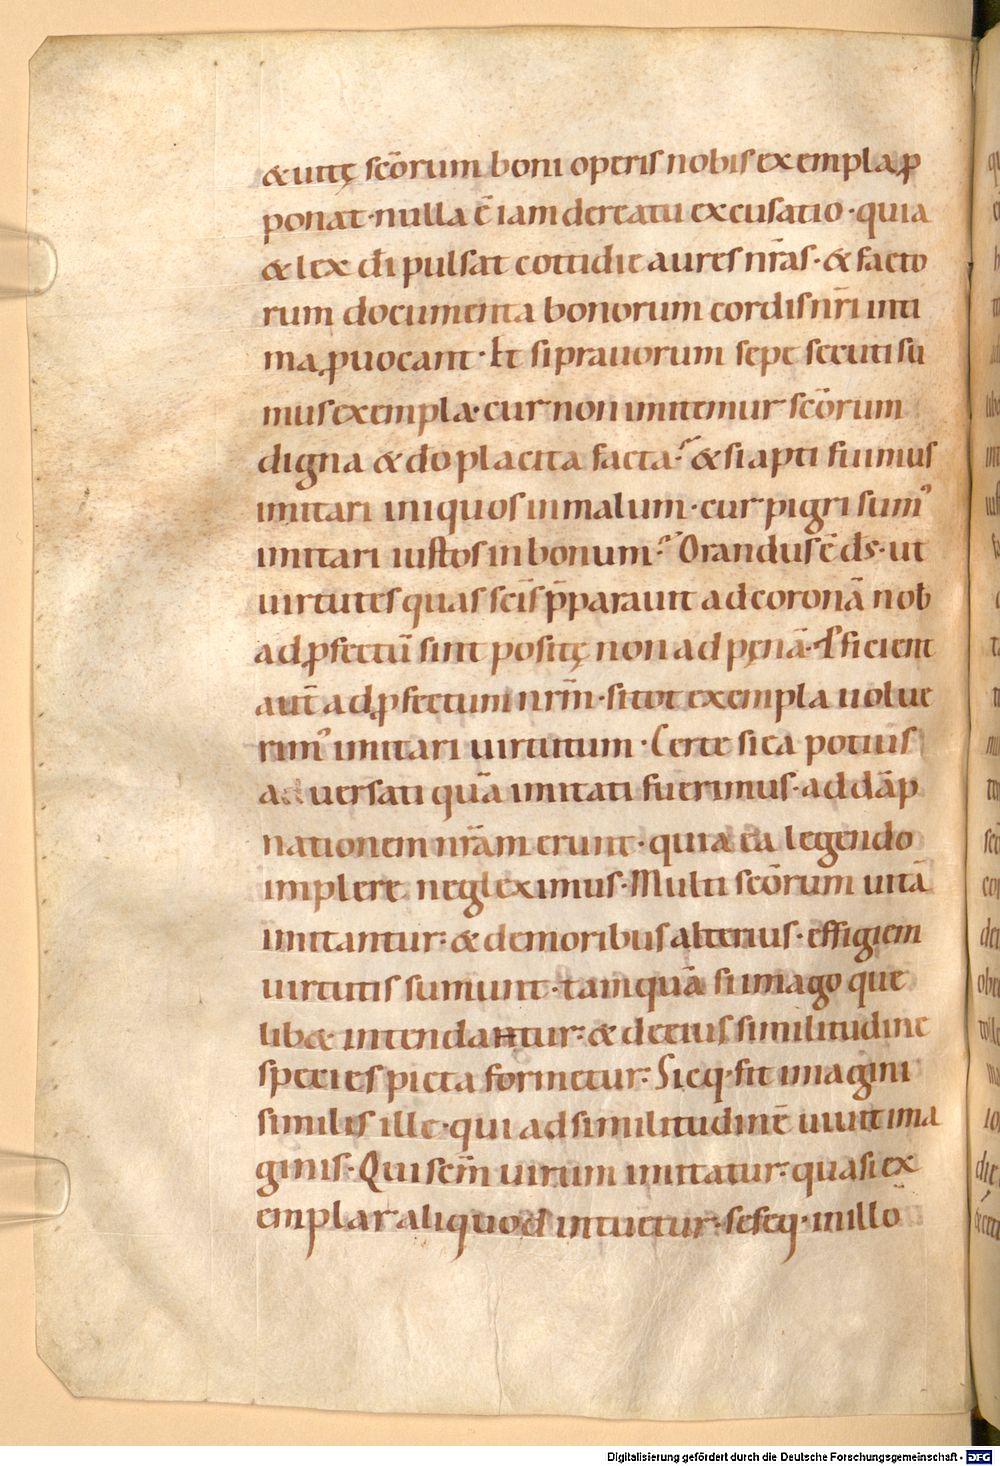 & uitę scōrum boni operis nobis exempla ꝓ
ponat · nulla ē iam de reatu excusatio · quia
& lex di pulsat cottidie aures nr̄as · & facto
rum documenta bonorum cordis nr̄i inti
ma ꝓuocant · Et si prauorum sepe secuti su
mus exempla · cur non imitemur scōrum
digna & do placita facta · & si apti fuimus
imitari iniquos in malum · cur pigri sumꝰ
imitari iustos in bonum · Orandus ē ds · ut
uirtutes quas scīs p̄parauit ad coronā nob
ad ꝓfectū sint positę non ad pęnā · Proficient
aut̄ ad ꝓfectum nrm̄ · si tot exempla uolue
rimꝰ imitari uirtutum · Certe si ea potius
aduersati quā imitati fuerimus · ad dāp
nationem nr̄am erunt · quia ea legendo
implere negleximus · Multi scōrum uitā
imitantur · & de moribus alterius · effigiem
uirtutis sumunt · tamquā si imago que
lib& intendatur · & de eius similitudine
species picta formetur · Sicq · fit imagini
similis ille · qui ad similitudinē uiuit ima
ginis · Qui sem̄ uirum imitatur · quasi ex
emplar aliquod intuetur · seseq · in illo
Digitalisierung gefördert durch die Deutsche Forschungsgemeinschaft - DFG